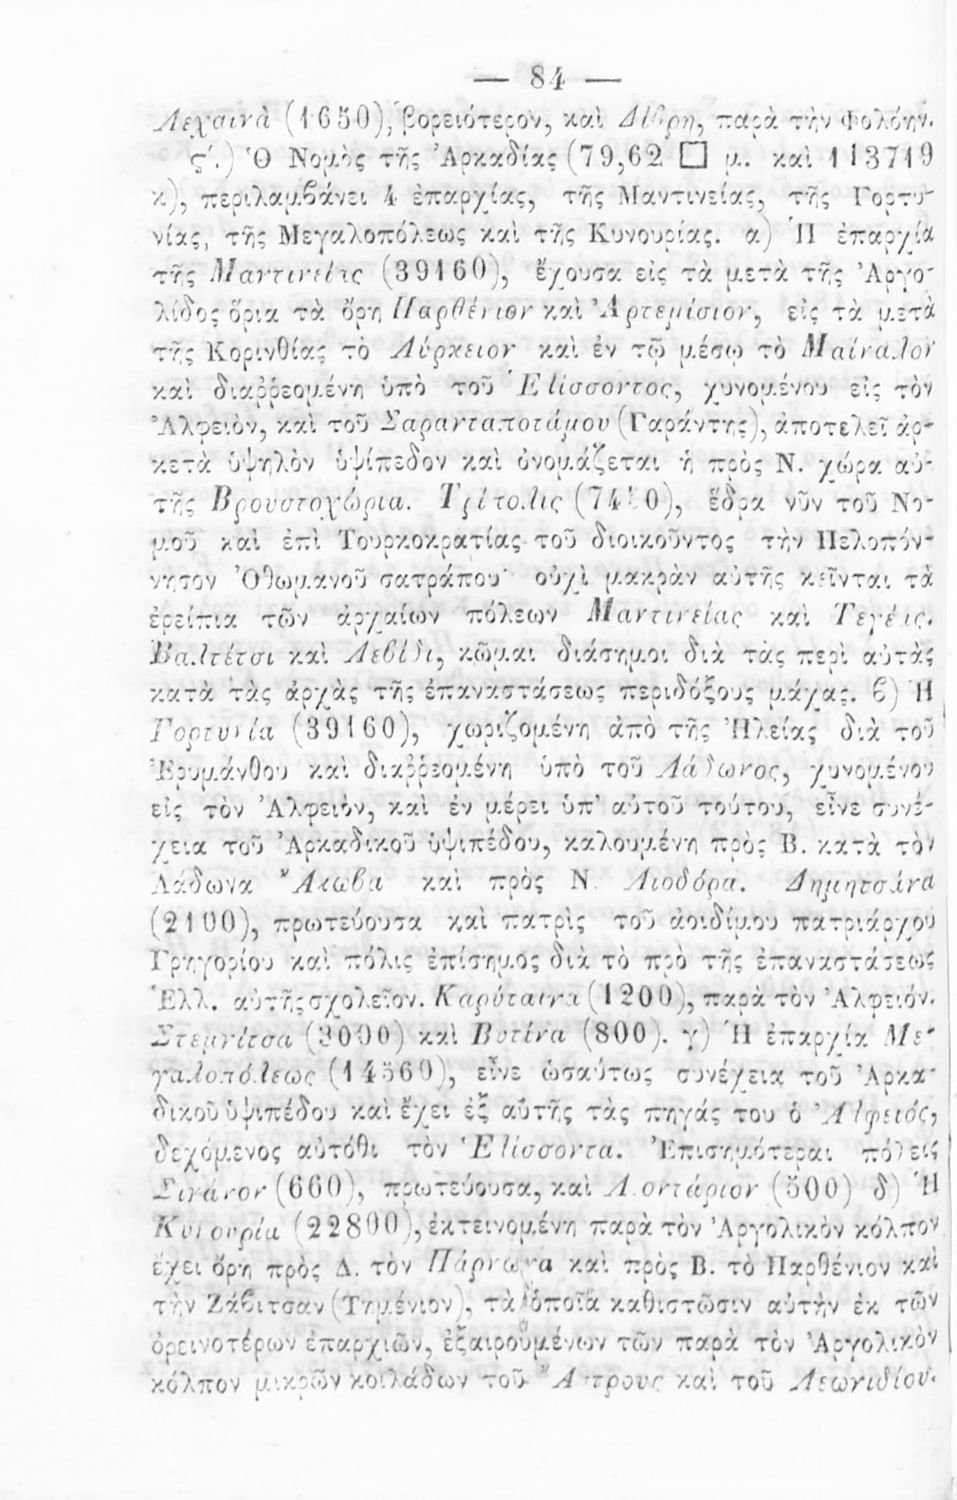 — 84 —
Λεχαινὰ (1650), βορειότερον, καὶ Δίβρη, παρὰ τὴν Φολόην.
ς΄.) Ὁ Νομὸς τῆς Ἀρκαδίας (79,62 □ μ. καὶ 113719
κ), περιλαμβάνει 4 ἐπαρχίας, τῆς Μαντινείας, τῆς Γορτυ-
νίας, τῆς Μεγαλοπόλεως καὶ τῆς Κυνουρίας. α) Ἡ ἐπαρχία
τῆς Μαντινείας (39160), ἔχουσα εἰς τὰ μετὰ τῆς Ἀργο-
λίδος ὅρια τὰ ὄρη Παρθένιον καὶ Ἀρτεμίσιον, εἰς τὰ μετὰ
τῆς Κορινθίας τὸ Λύρκειον καὶ ἐν τῷ μέσῳ τὸ Μαίναλον
καὶ διαῤῥεομένη ὑπὸ τοῦ Ἑλίσσοντος, χυνομένου εἰς τὸν
Ἀλφειὸν, καὶ τοῦ Σαρανταποτάμου (Γαράντης), ἀποτελεῖ ἀρ-
κετὰ ὑψηλὸν ὑψίπεδον καὶ ὀνομάζεται ἡ πρὸς Ν. χώρα αὐ-
τῆς Βρουστοχώρια. Τρίπολις ἕδρα νῦν τοῦ Νο-
μοῦ καὶ ἐπὶ Τουρκοκρατίας τοῦ διοικοῦντος τὴν Πελοπόν-
νησον Ὀθωμανοῦ σατράπου· οὐχὶ μακρὰν αὐτῆς κεῖνται τὰ
ἐρείπια τῶν ἀρχαίων πόλεων Μαντινείας καὶ Τεγέας.
Βαλτέτσι καὶ Λεβίδι, κῶμαι διάσημοι διὰ τὰς περὶ αὐτὰς
κατὰ τὰς ἀρχὰς τῆς ἐπαναστάσεως περιδόξους μάχας. β) Ἡ
Γορτυνία (39160), χωριζομένη ἀπὸ τῆς Ἠλείας διὰ τοῦ
Ἐρυμάνθου καὶ διαῤῥεομένη ὑπὸ τοῦ Λάδωνος, χυνομένου
εἰς τὸν Ἀλφειὸν, καὶ ἐν μέρει ὑπ' αὐτοῦ τούτου, εἶνε συνέ-
χεια τοῦ Ἀρκαδικοῦ ὑψιπέδου, καλουμένη πρὸς Β. κατὰ τὸν
Λάδωνα Ἄκωβα καὶ πρὸς Ν Λιοδόρα. Δημητσάνα
(2100), πρωτεύουσα καὶ πατρὶς τοῦ ἀοιδίμου πατριάρχου
Γρηγορίου καὶ πόλις ἐπίσημος διὰ τὸ πρὸ τῆς ἐπαναστάσεως
Ἑλλ. αὐτῆς σχολεῖον. Καρύταινα (1200), παρὰ τὸν Ἀλφειόν.
Στεμνίτσα (3000) καὶ Βυτίνα (800). γ) Ἡ ἐπαρχία Με-
γαλοπόλεως (14560), εἶνε ὡσαύτως συνέχεια τοῦ Ἀρκα-
δικοῦ ὑψιπέδου καὶ ἔχει ἐξ αὐτῆς τὰς πηγάς του ὁ Ἀλφειός,
δεχόμενος αὐτόθι τὸν Ἑλίσσοντα. Ἐπισημότεραι πόλεις
Σινάνον (660), πρωτεύουσα, καὶ Λεοντάριον (500) δ) Ἡ
Κυνουρία (22800), ἐκτεινομένη παρὰ τὸν Ἀργολικὸν κόλπον
ἔχει ὄρη πρὸς Δ. τὸν Πάρνωνα καὶ πρὸς Β. τὸ Παρθένιον καὶ
τὴν Ζάβιτσαν (Τημένιον), τὰ ὁποῖα καθιστῶσιν αὐτὴν ἐκ τῶν
ὀρεινοτέρων ἐπαρχιῶν, ἐξαιρουμένων τῶν παρὰ τὸν Ἀργολικὸν
κόλπον μικρῶν κοιλάδων τοῦ Ἄστρους καὶ τοῦ Λεωνιδίου.